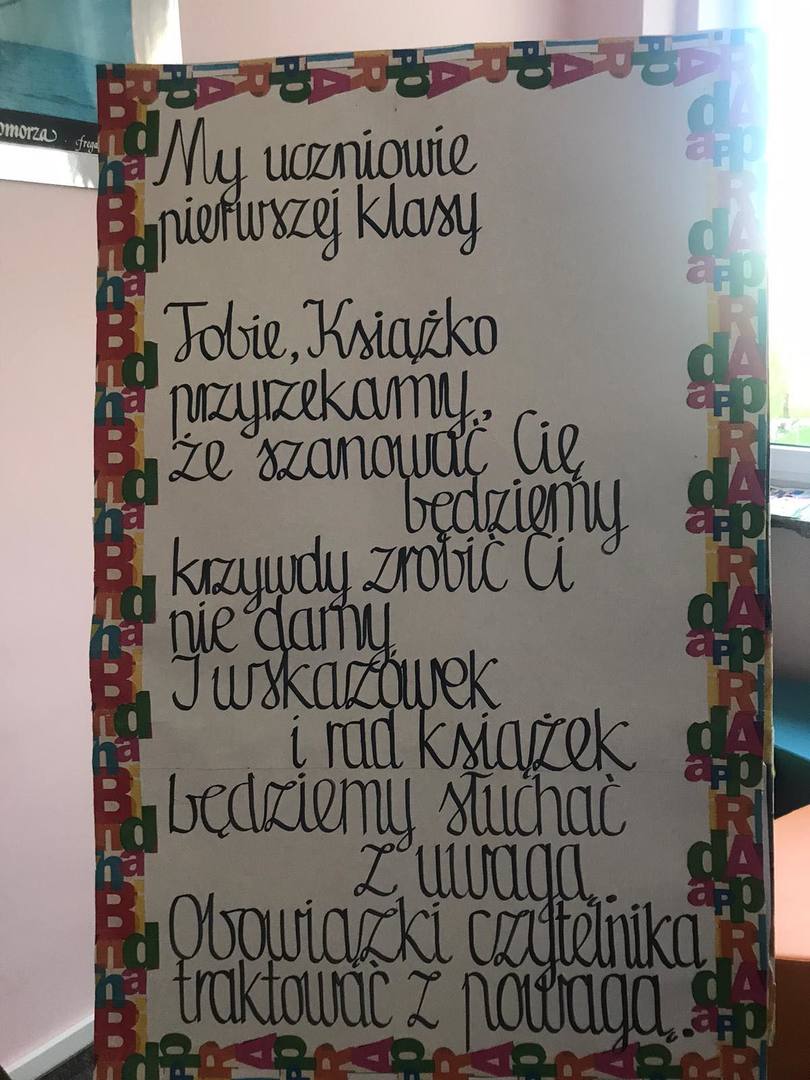 omorza
frega
My uczniowie
pierwszej klasy
Tobie, Książko
przyrzekamy,
że szanować Cię
będziemy
krzywdy zrobić Ci
nie damy
I wskazówek
i rad książek
będziemy słuchać
z uwagą.
Obowiązki czytelnika
traktować z powagą.